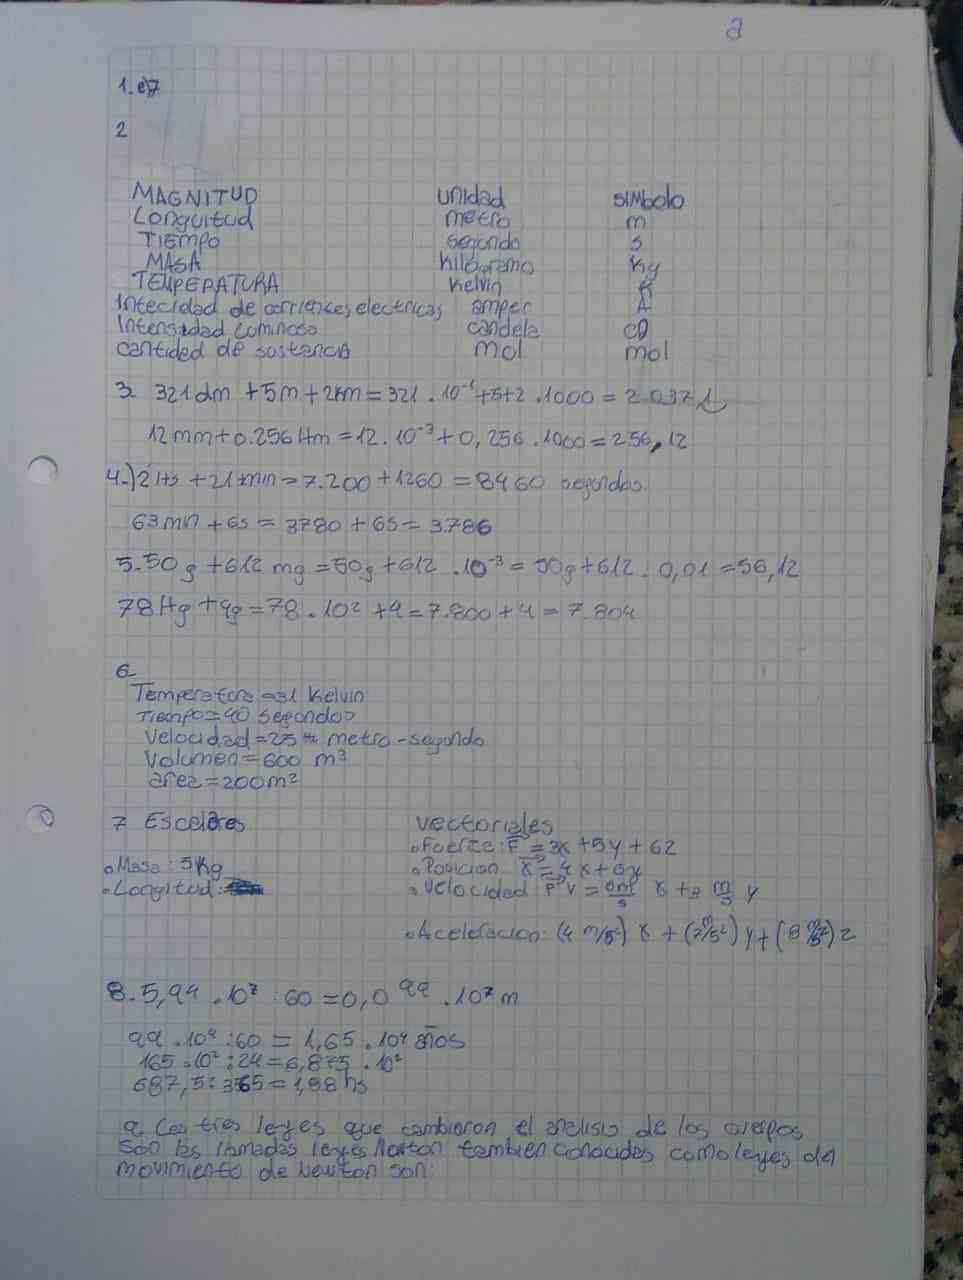 a
1. e)7
2
MAGNITUD unidad SIMbolo
Longuitud metro m
TIEMPO segundo s
MASA Kilogramo Kg
TEMPERATURA Kelvin K
Intecidad de corrientes electricas amper A
Intensidad Luminosa candela CD
cantidad de sustancia mol mol
3. 321dm + 5m + 2km = 321 . 10⁻¹ + 5 + 2 . 1000 = 2.037,1
12mm + 0.256 Hm = 12 . 10⁻³ + 0,256 . 1000 = 256,12
4-) 2 Hs + 21 min = 7.200 + 1260 = 8460 segundos
63 min + 6s = 3780 + 6s = 3.786
5. 50g + 612 mg = 50g + 612 . 10⁻³ = 50g + 612 . 0,01 = 56,12
78 Hg + 4g = 78 . 10² + 4 = 7.800 + 4 = 7.804
6-
Temperatura = 31 Kelvin
Tiempo = 40 segundos
Velocidad = 25 metro - segundo
Volumen = 600 m³
area = 200m²
7 Escalares vectoriales
• Fuerza: F = 3x + 5y + 6z
• Masa: 5Kg • Posicion X = 4x + 6y
• Longitud: • Velocidad V = m/s x + 3 m/s y
• Aceleracion: (4 m/s²) x + (7 m/s²) y + (8 m/s²) z
8. 5,94 . 10⁷ : 60 = 0,099 . 10⁷ m
99 . 10⁴ : 60 = 1,65 . 10⁴ años
165 . 10² : 24 = 6,875 . 10²
687,5 : 365 = 1,88 hs
9 Las tres leyes que cambiaron el analisis de los cuerpos
son las llamadas leyes Newton tambien conocidas como leyes del
movimiento de Newton son: